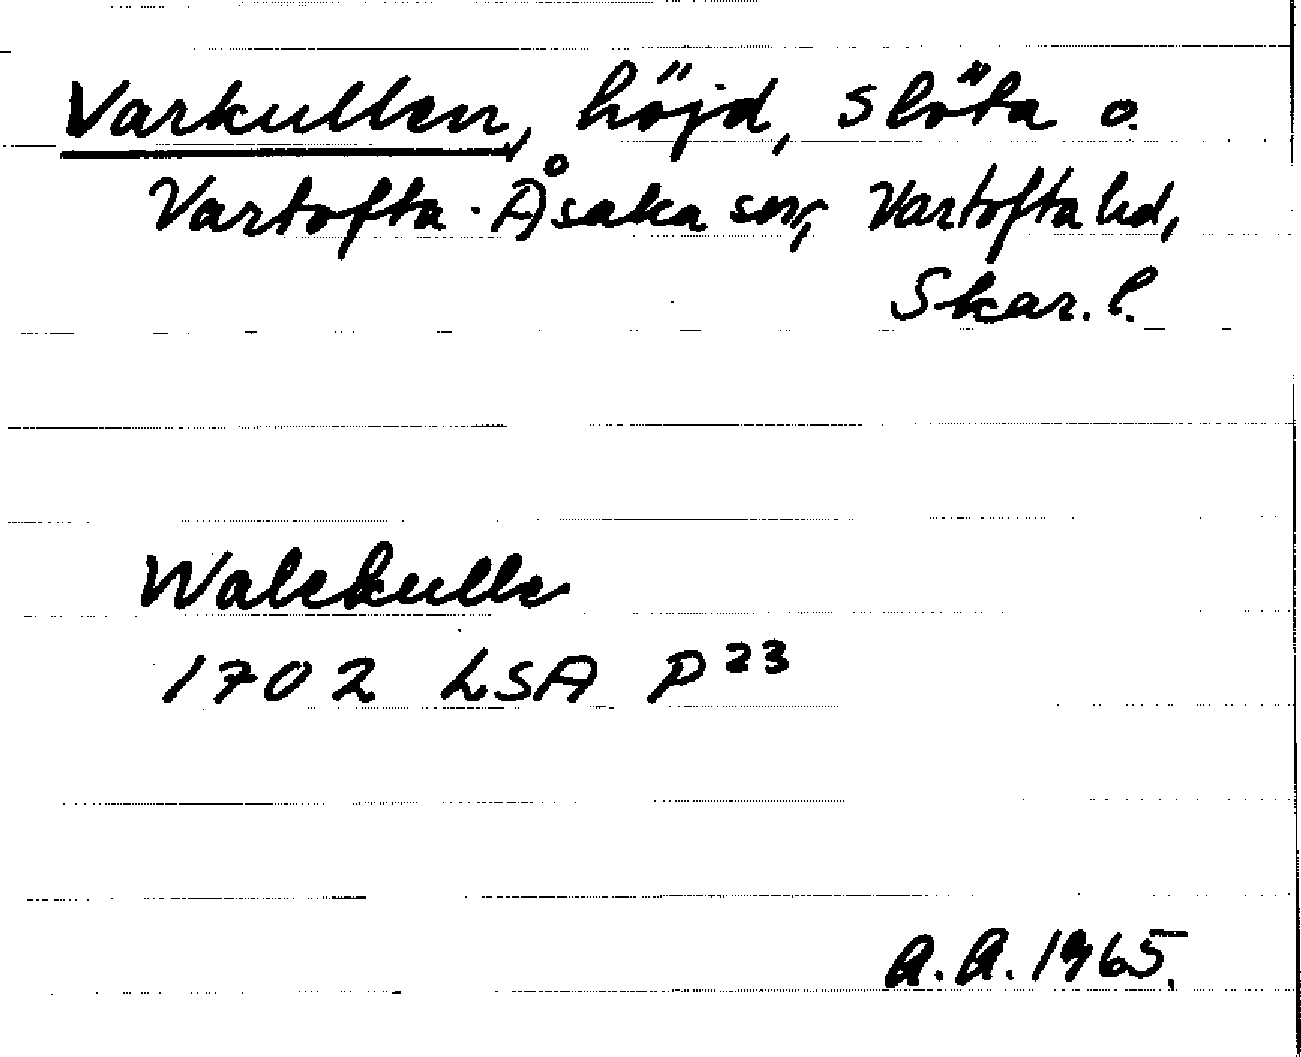 Varkullen, höjd, Slöta o.
Vartofta-Åsaka snr, Vartofta hd,
Skar. l.
Walekulle
1702 LSA P23
A.A. 1965.